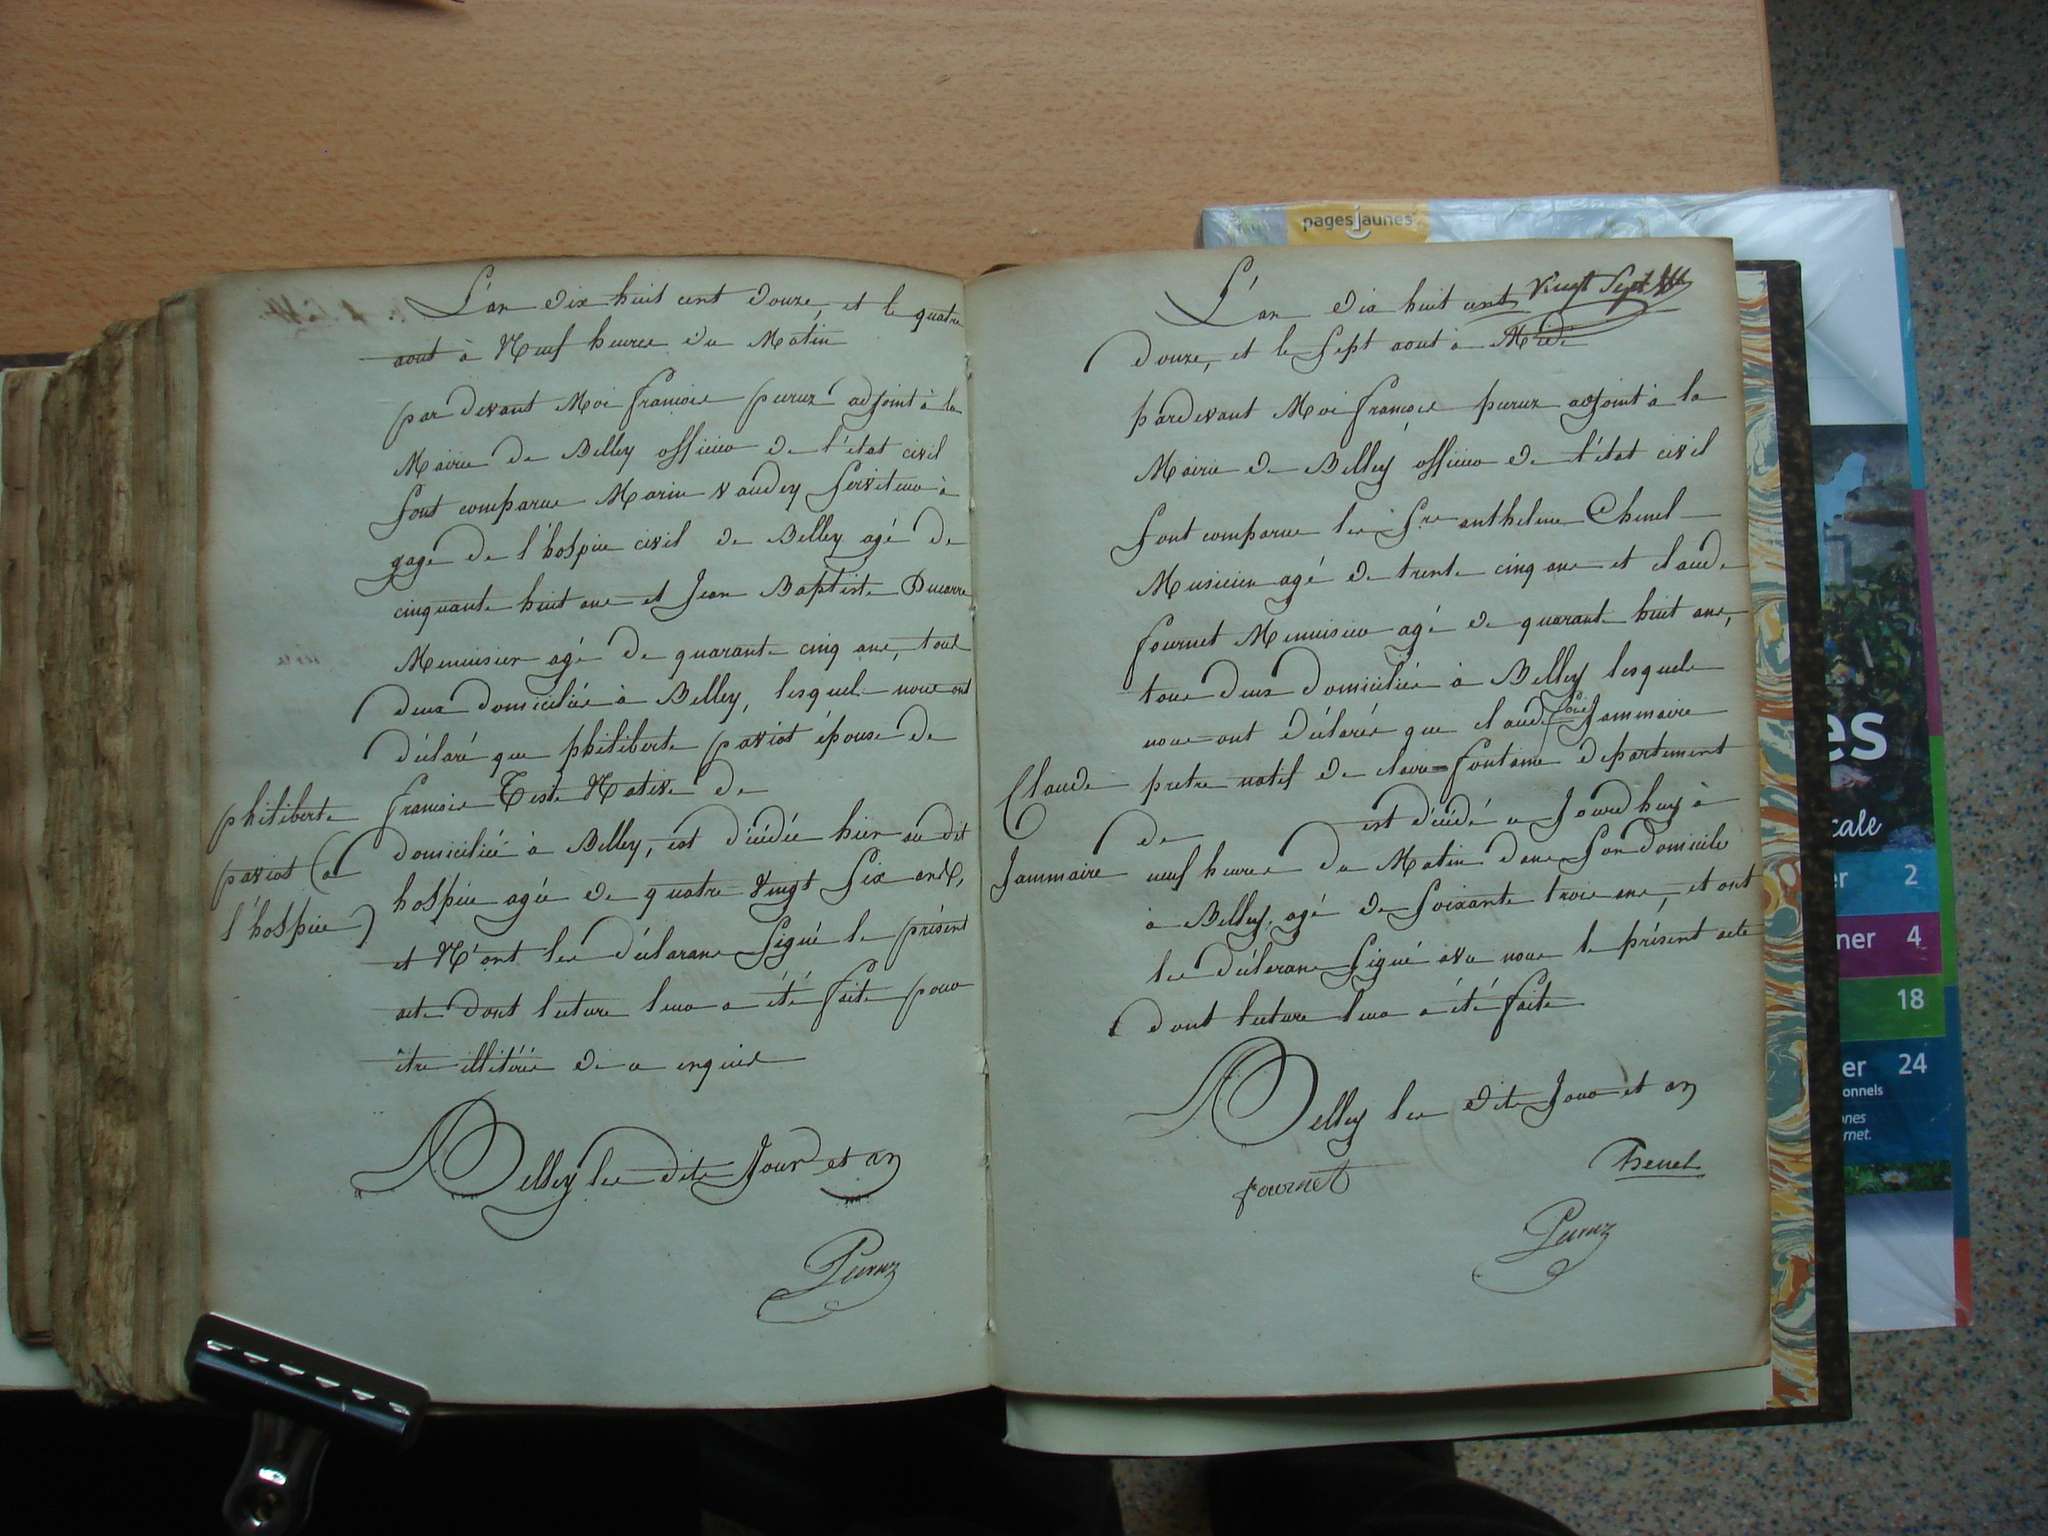 L'an dix huit cent douze, et le quatre
aout à Neuf heures du Matin
par devant Moi francois peruz adjoint à la
Mairie de Belley officier de l'état civil
Sont comparus Marin vaudey Serviteur à
gage de l'hospice civil de Belley agé de
cinquante huit ans et Jean Baptiste Ducarre
Menuisier agé de quarante cinq ans, tous
deux domiciliés à Belley, lesquels nous ont
déclaré que philiberte paviot épouse de
francois Teste Native de
domiciliée à Belley, est décédée hier au dit
hospice agée de quatre Vingt Six ans,
et N'ont les déclarans Signé le présent
acte dont lecture leur a été faite pour
être illitérés de ce enquis
Belley les dits Jour et an
Peruz
philiberte
paviot (a
l'hospice)
Vingt Sept
L'an dix huit cent
douze, et le Sept aout à Midi
pardevant Moi francois peruz adjoint à la
Mairie de Belley officier de l'état civil
Sont comparus les Srs anthelme Chenel
Musicien agé de trente cinq ans et claude
fournet Menuisier agé de quarante huit ans,
tous deux domiciliés à Belley lesquels
nous ont déclarés que claude Jammaire
pretre natif de claire=fontaine departement
de est décédé aujourdhuy à
neuf heures du Matin dans Son domicile
à Belley, agé de Soixante trois ans, et ont
les déclarans Signé avec nous le présent acte
dont lecture leur a été faite
Belley les dits Jour et an
fournet
Chenel
Peruz
Claude
Jammaire
pagesjaunes
es
cale
er 2
ner 4
18
er 24
onnels
nnes
rnet.